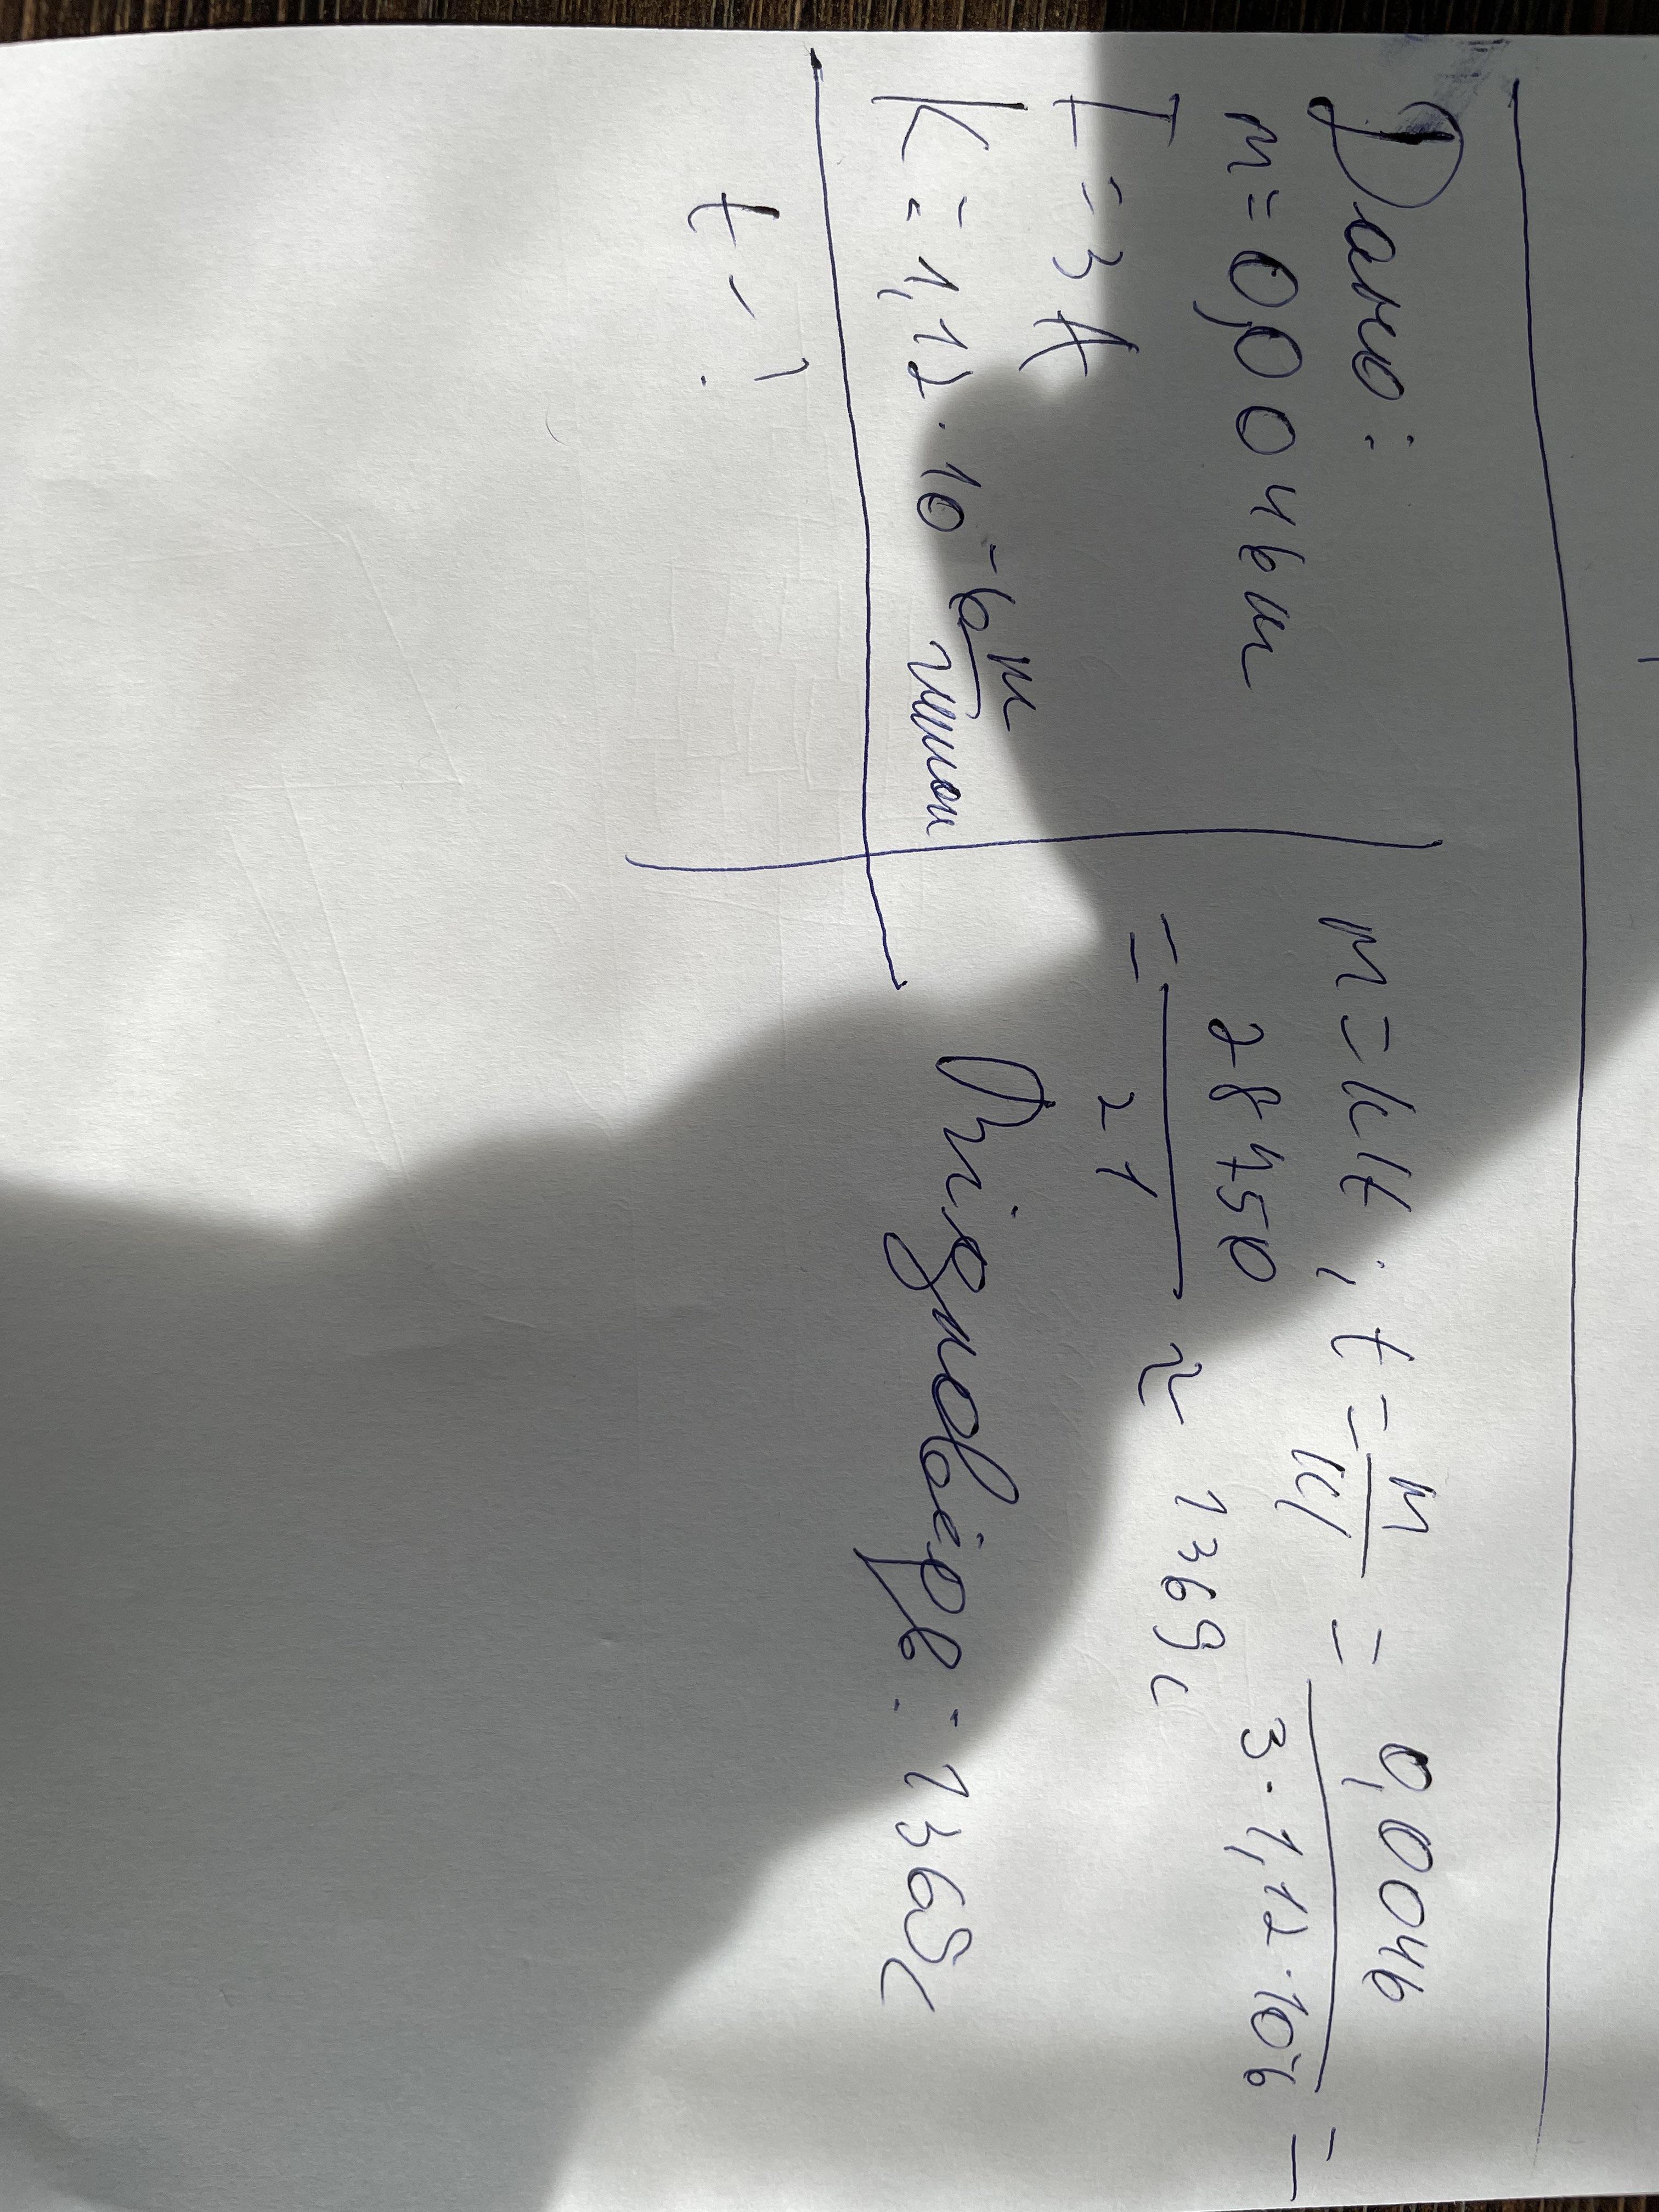 Дано:
m=0,0046m
I=3A
K=1,12·10⁻⁶ m/
m=kIt; t=m/kI=0,0046/3·1,12·10⁻⁶=
=28750/21≈1369c
t-?
Відповідь: 1369c